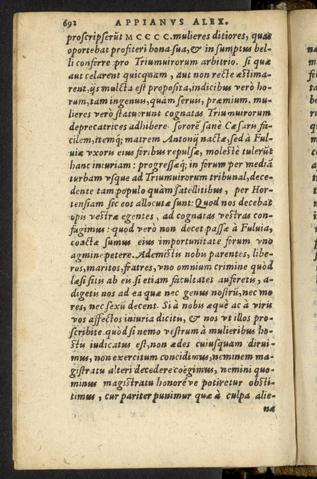 692 APPIANVS ALEX.
proscripserūt MCCCC. mulieres ditiores, quas
oportebat profiteri bona sua, & in sumptus bel-
li conferre pro Triumuirorum arbitrio. Si quæ
aut celarent quicquam, aut non recte æstima-
rent, ijs mulcta est proposita, indicibus verò ho-
rum, tam ingenuis, quàm seruis, præmium. mu-
lieres verò statuerunt cognatas Triumuirorum
deprecatrices adhibere. Sororē sanè Cæsaris fa-
cilem, itemq; matrem Antonij nactæ, sed à Ful-
uia vxoris eius foribus repulsæ, molestè tulerūt
hanc iniuriam: progressæq; in forum per mediā
turbam vsque ad Triumuirorum tribunal, dece-
dente tam populo quàm satellitibus, per Hor-
tensiam sic eos allocutæ sunt: Quod nos decebat
opis vestræ egentes, ad cognatas vestras con-
fugimus: quod verò non decet passæ à Fuluia,
coactæ sumus eius importunitate forum vno
agmine petere. Ademistis nobis parentes, libe-
ros, maritos, fratres, vno omnium crimine quòd
læsi sitis ab eis. si etiam facultates auferetis, a-
digetis nos ad ea quæ nec genus nostrū, nec mo
res, nec sexū decent. Si à nobis æquè ac à viris
vos affectos iniuria dicitis, & nos vt illos pro-
scribite. quòd si nemo vestrum à mulieribus ho-
stis iudicatus est, non ædes cuiusquam dirui-
mus, non exercitum concidimus, neminem ma-
gistratu alteri decedere coëgimus, nemini quo-
minus magistratu honoréve potiretur obsti-
timus, cur pariter punimur quæ à culpa alie-
næ